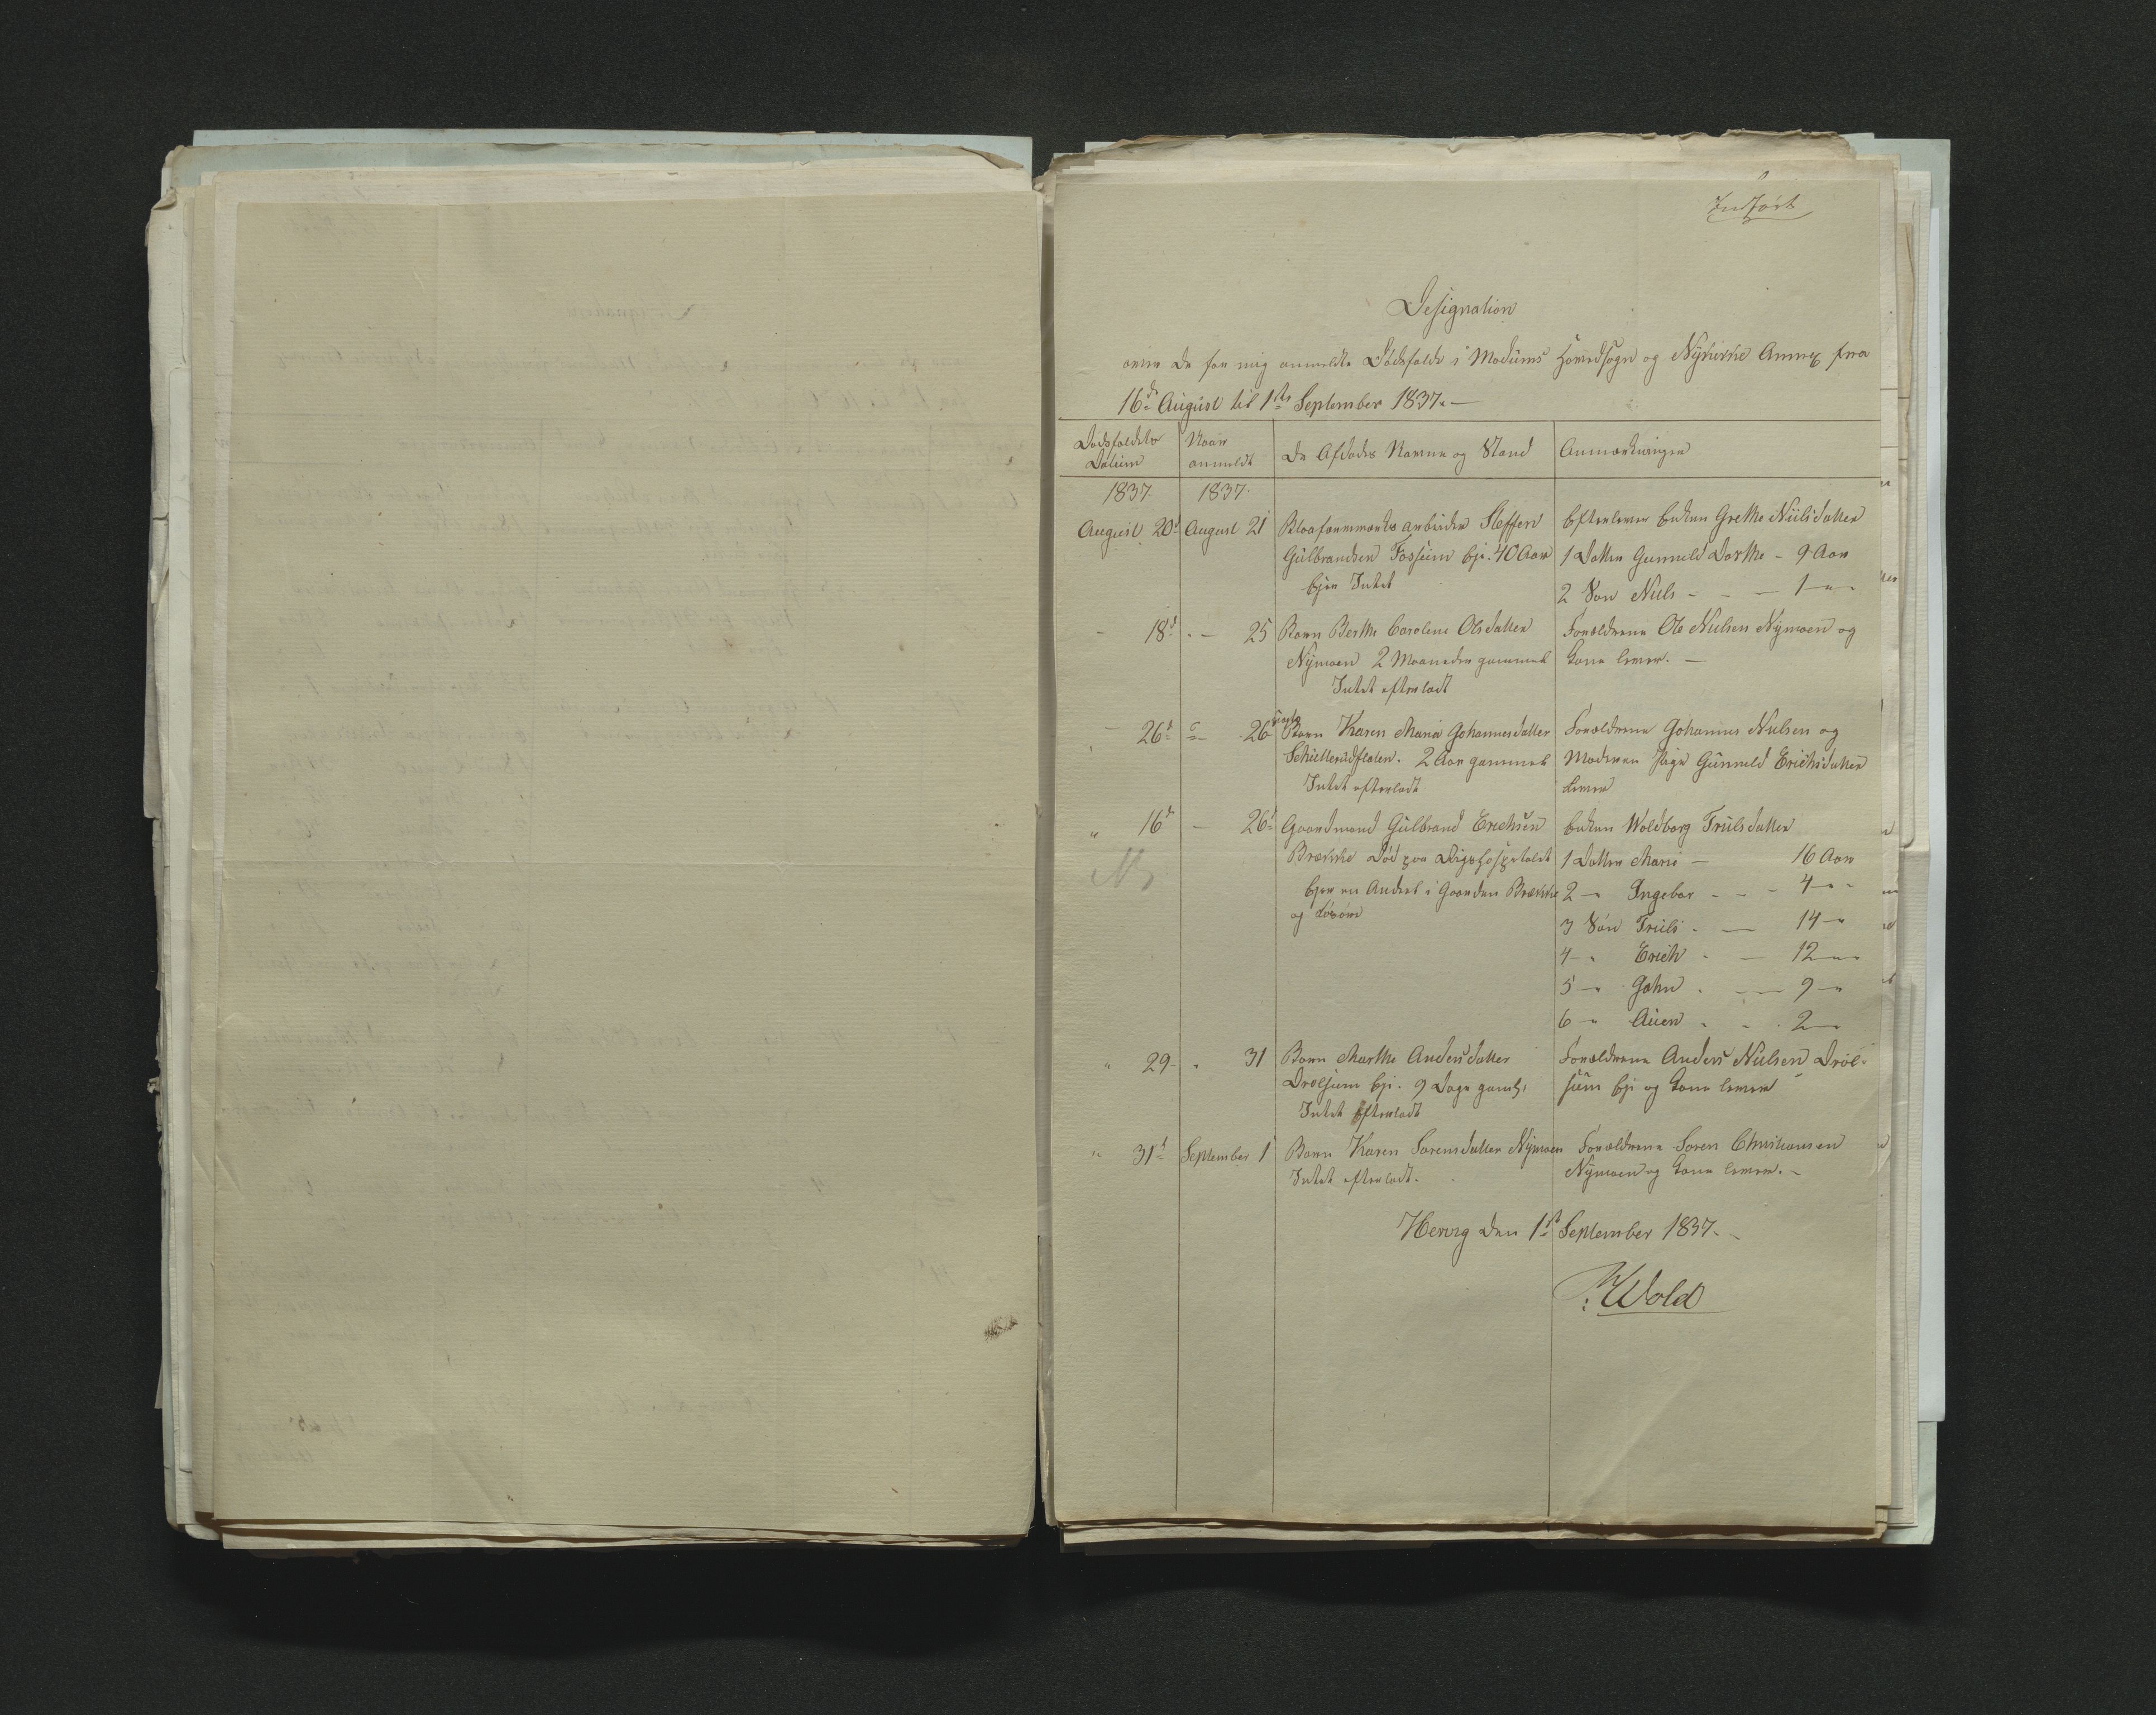 Indført
Designation
over de for mig anmeldte Dødsfalde i Modums Hovedsogn og Nykirke Annex fra
16de August til 1ste September 1837.
Dødsfaldets Datum
Naar anmeldt
De Afdødes Navne og Stand
Anmærkninger
1837 1837
August 20d August 21 Blaafarveværks arbeider Steffen Efterlever Enken Grethe Nielsdatter
Gulbrandsen Fossum eje. 40 Aar 1 Datter Gunnild Dorthe - 9 Aar
Ejer Intet 2 Søn Niels - - - 1 - "
- 18d - 25 Barn Berthe Caroline Olsdatter Forældrene Ole Nielsen Nymoen og
Nymoen 2 Maaneder gammel Kone lever. -
Intet efterladt
- 26d - 26 Barn Karen Maria Johannesdatter Forældrene Johannes Nielsen og
2 Aar gammel Moderen Pige Gunnild Erichsdatter
Intet efterladt lever
" 16d - 26d Gaardmand Gulbrand Erichsen Enken Woldborg Trulsdatter
Brække Død paa Rigshospitalet 1 Datter Marie - 16 Aar
Ejer en Andeel i Gaarden Brække 2 - Ingebor - - 4 - "
og Løsøre 3 Søn Truls - - 14 - "
4 - " Erich - - 12 - "
5 - " John - - 9 - "
6 - " Auen - - 2 -
" 29 - " 31 Barn Marthe Andersdatter Forældrene Anders Nielsen Drøl-
Drølsum eje. 9 Dage gaml. sum eje og Kone lever
Intet efterladt
" 31d September 1 Barn Karen Sorensdatter Nymoen Forældrene Soren Christiansen
Intet efterladt. Nymoen og Kone lever. -
Hervig den 1ste September 1837. -
Wold